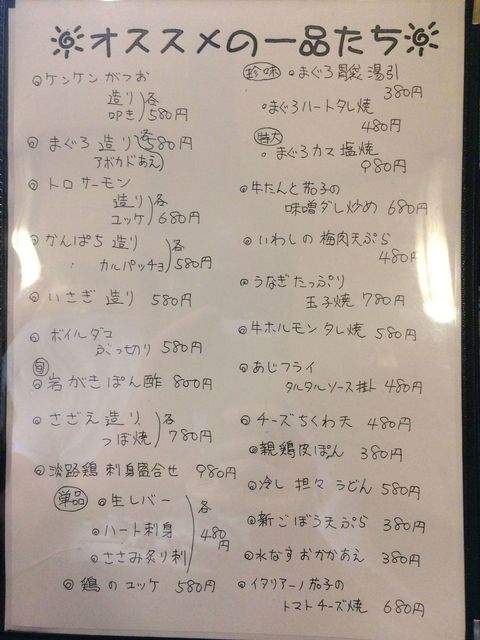 オススメの一品たち
◎ケンケンがつお
造り
叩き
各580円
◎まぐろ 造り
アボカドあえ
各580円
◎トロサーモン
造り
ユッケ
各680円
◎かんぱち 造り
カルパッチョ
各580円
◎いさぎ 造り 580円
◎ボイルダコ
ぶつ切り 580円
旬
◎岩がきぽん酢 800円
◎さざえ 造り
つぼ焼
各780円
◎淡路鶏 刺身盛合せ 980円
単品
◎生レバー
◎ハート刺身
◎ささみ炙り刺
各480円
◎鶏のユッケ 580円
珍味
◎まぐろ胃袋湯引
380円
◎まぐろハートタレ焼
480円
特大
◎まぐろカマ塩焼
980円
◎牛たんと茄子の
味噌ダレ炒め 680円
◎いわしの梅肉天ぷら
480円
◎うなぎたっぷり
玉子焼 780円
◎牛ホルモンタレ焼 580円
◎あじフライ
タルタルソース掛け 480円
◎チーズちくわ天 480円
◎親鶏皮ぽん 380円
◎冷し担々うどん 580円
◎新ごぼう天ぷら 380円
◎水なすおかかあえ 380円
◎イタリアーノ茄子の
トマトチーズ焼 680円